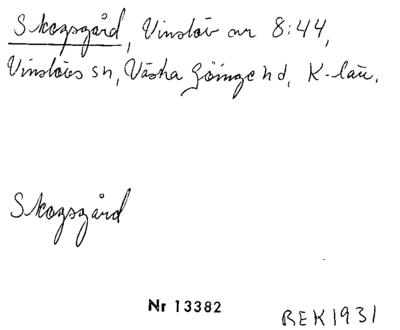 Skogsgård, Vinslöv nr 8:44,
Vinslövs sn, Västra Göinge hd, K-län.
Skogsgård
Nr 13382
BEK 1931